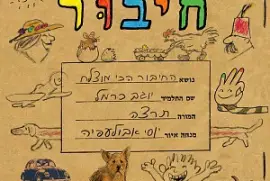 חיבור
נושא החיבור הכי מוצלח
שם התלמיד יוגב כרמל
המורה תרצה
מנהה איור יוסי אבולעפיה